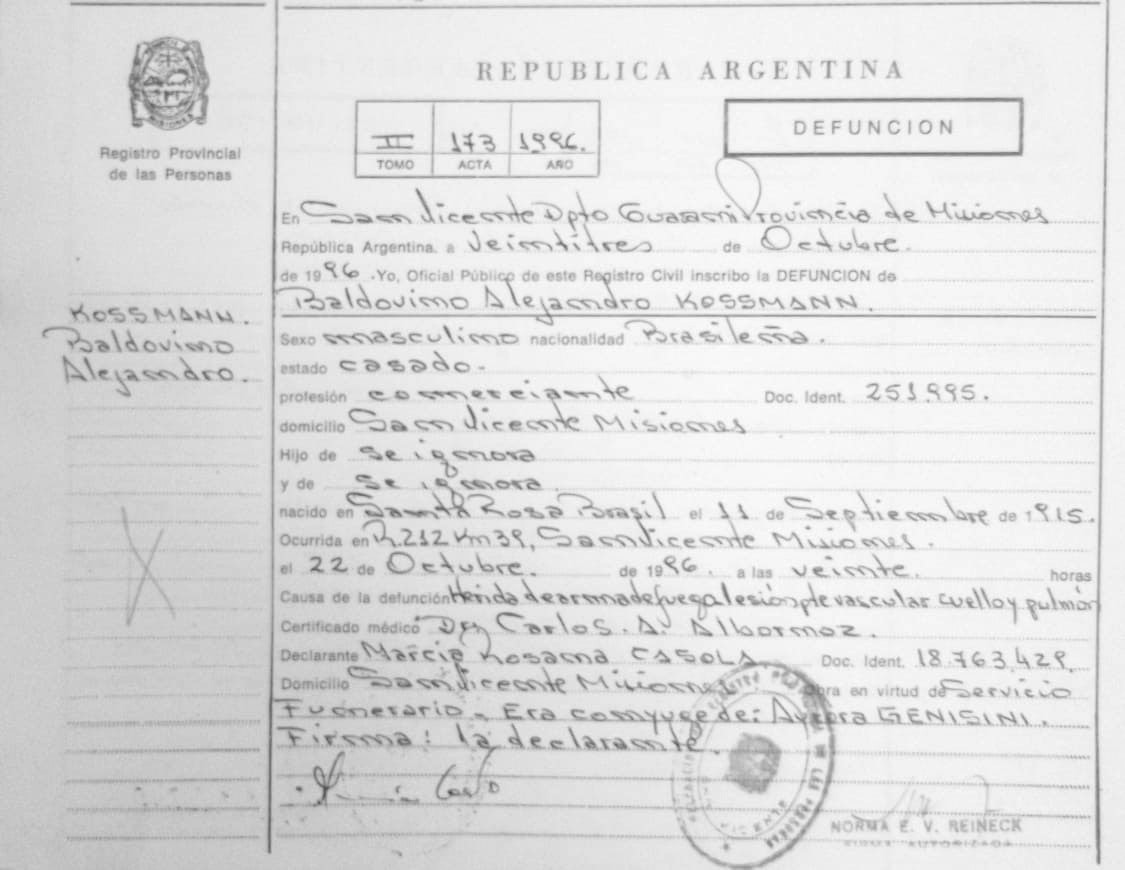 REPUBLICA ARGENTINA
MISIONES
Registro Provincial
de las Personas
II 173 1996.
TOMO ACTA AÑO
DEFUNCION
En San Vicente Dpto Guaraní Provincia de Misiones
República Argentina, a Veintitres de Octubre.
de 1996. Yo, Oficial Público de este Registro Civil inscribo la DEFUNCION de
Baldovino Alejandro KOSSMANN.
KOSSMANN.
Baldovino
Alejandro.
Sexo masculino nacionalidad Brasileña.
estado casado.
profesión comerciante Doc. Ident. 251.995.
domicilio San Vicente Misiones
Hijo de se ignora
y de se ignora.
nacido en Santa Rosa Brasil el 11 de Septiembre de 1915.
Ocurrida en R.212 Km 39, San Vicente Misiones.
el 22 de Octubre. de 1996. a las veinte. horas
Causa de la defunción Herida de arma de fuego lesión pte vascular cuello y pulmón
Certificado médico Dr Carlos. A. Albornoz.
Declarante Marcia Rosana CASOLA Doc. Ident. 18.763.429.
Domicilio San Vicente Misiones. Obra en virtud de Servicio
Funerario. Era conyuge de: Aurora GENISINI.
Firma: la declarante.
NORMA E. V. REINECK
FIRMA AUTORIZADA